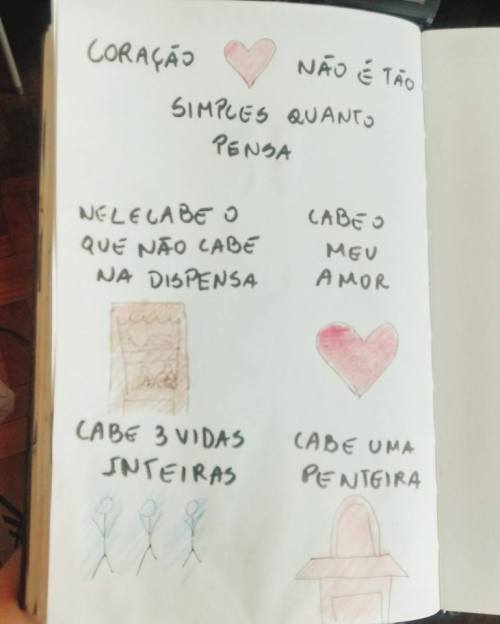 CORAÇÃO NÃO É TÃO
SIMPLES QUANTO
PENSA
NELECABE O
QUE NÃO CABE
NA DISPENSA
CABE O
MEU
AMOR
CABE 3 VIDAS
INTEIRAS
CABE UMA
PENTEIRA